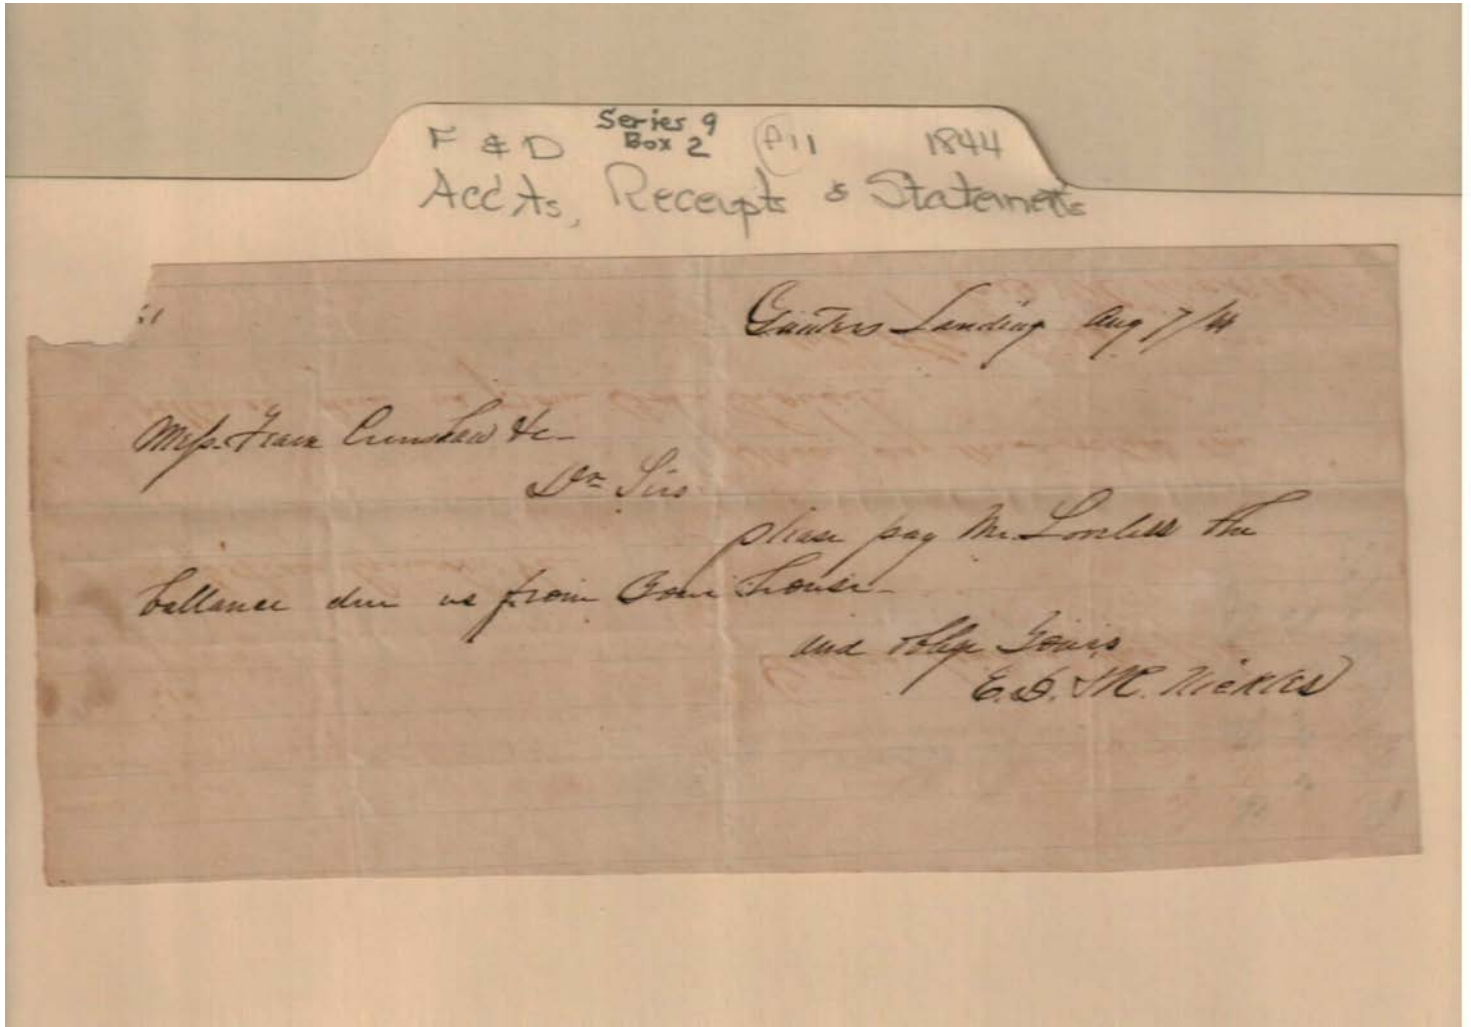 F & D Series 9 Box 2 F11 1844
Accts, Receipts & Statements
Gunters Landing Aug 7/44
Messrs. Fearn Crenshaw &c
Dr Sirs
please pay Mr. the
ballance due us from Your house
and oblige Yours
E. D. & R. Nickles